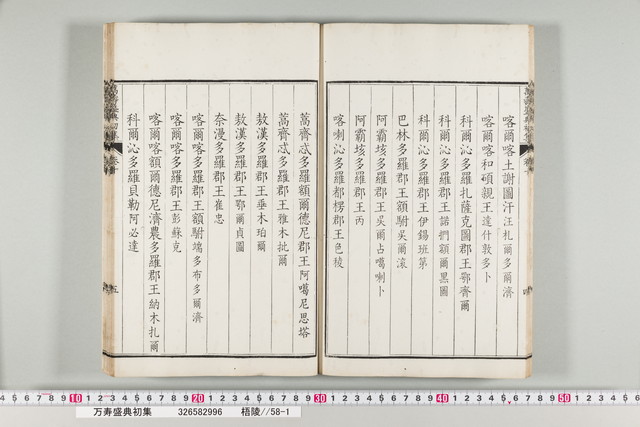 喀爾喀土謝圖汗汪札爾多爾濟
喀爾喀和碩親王達什敦多卜
科爾沁多羅扎薩克圖郡王鄂齊爾
科爾沁多羅郡王諾捫額爾黑圖
科爾沁多羅郡王伊錫班第
巴林多羅郡王額駙吴爾滾
阿霸垓多羅郡王吴爾占噶喇卜
阿霸垓多羅郡王丙
喀喇沁多羅都楞郡王色稜
蒿齊忒多羅額爾德尼郡王阿噶尼思塔
蒿齊忒多羅郡王雅木批爾
敖漢多羅郡王垂木珀爾
敖漢多羅郡王鄂爾貞圖
奈漫多羅郡王崔忠
喀爾喀多羅郡王額駙端多布多爾濟
喀爾喀多羅郡王彭蘇克
喀爾喀額爾德尼濟農多羅郡王納木扎爾
科爾沁多羅貝勒阿必達
五
万寿盛典初集 326582996 梧陵//58-1